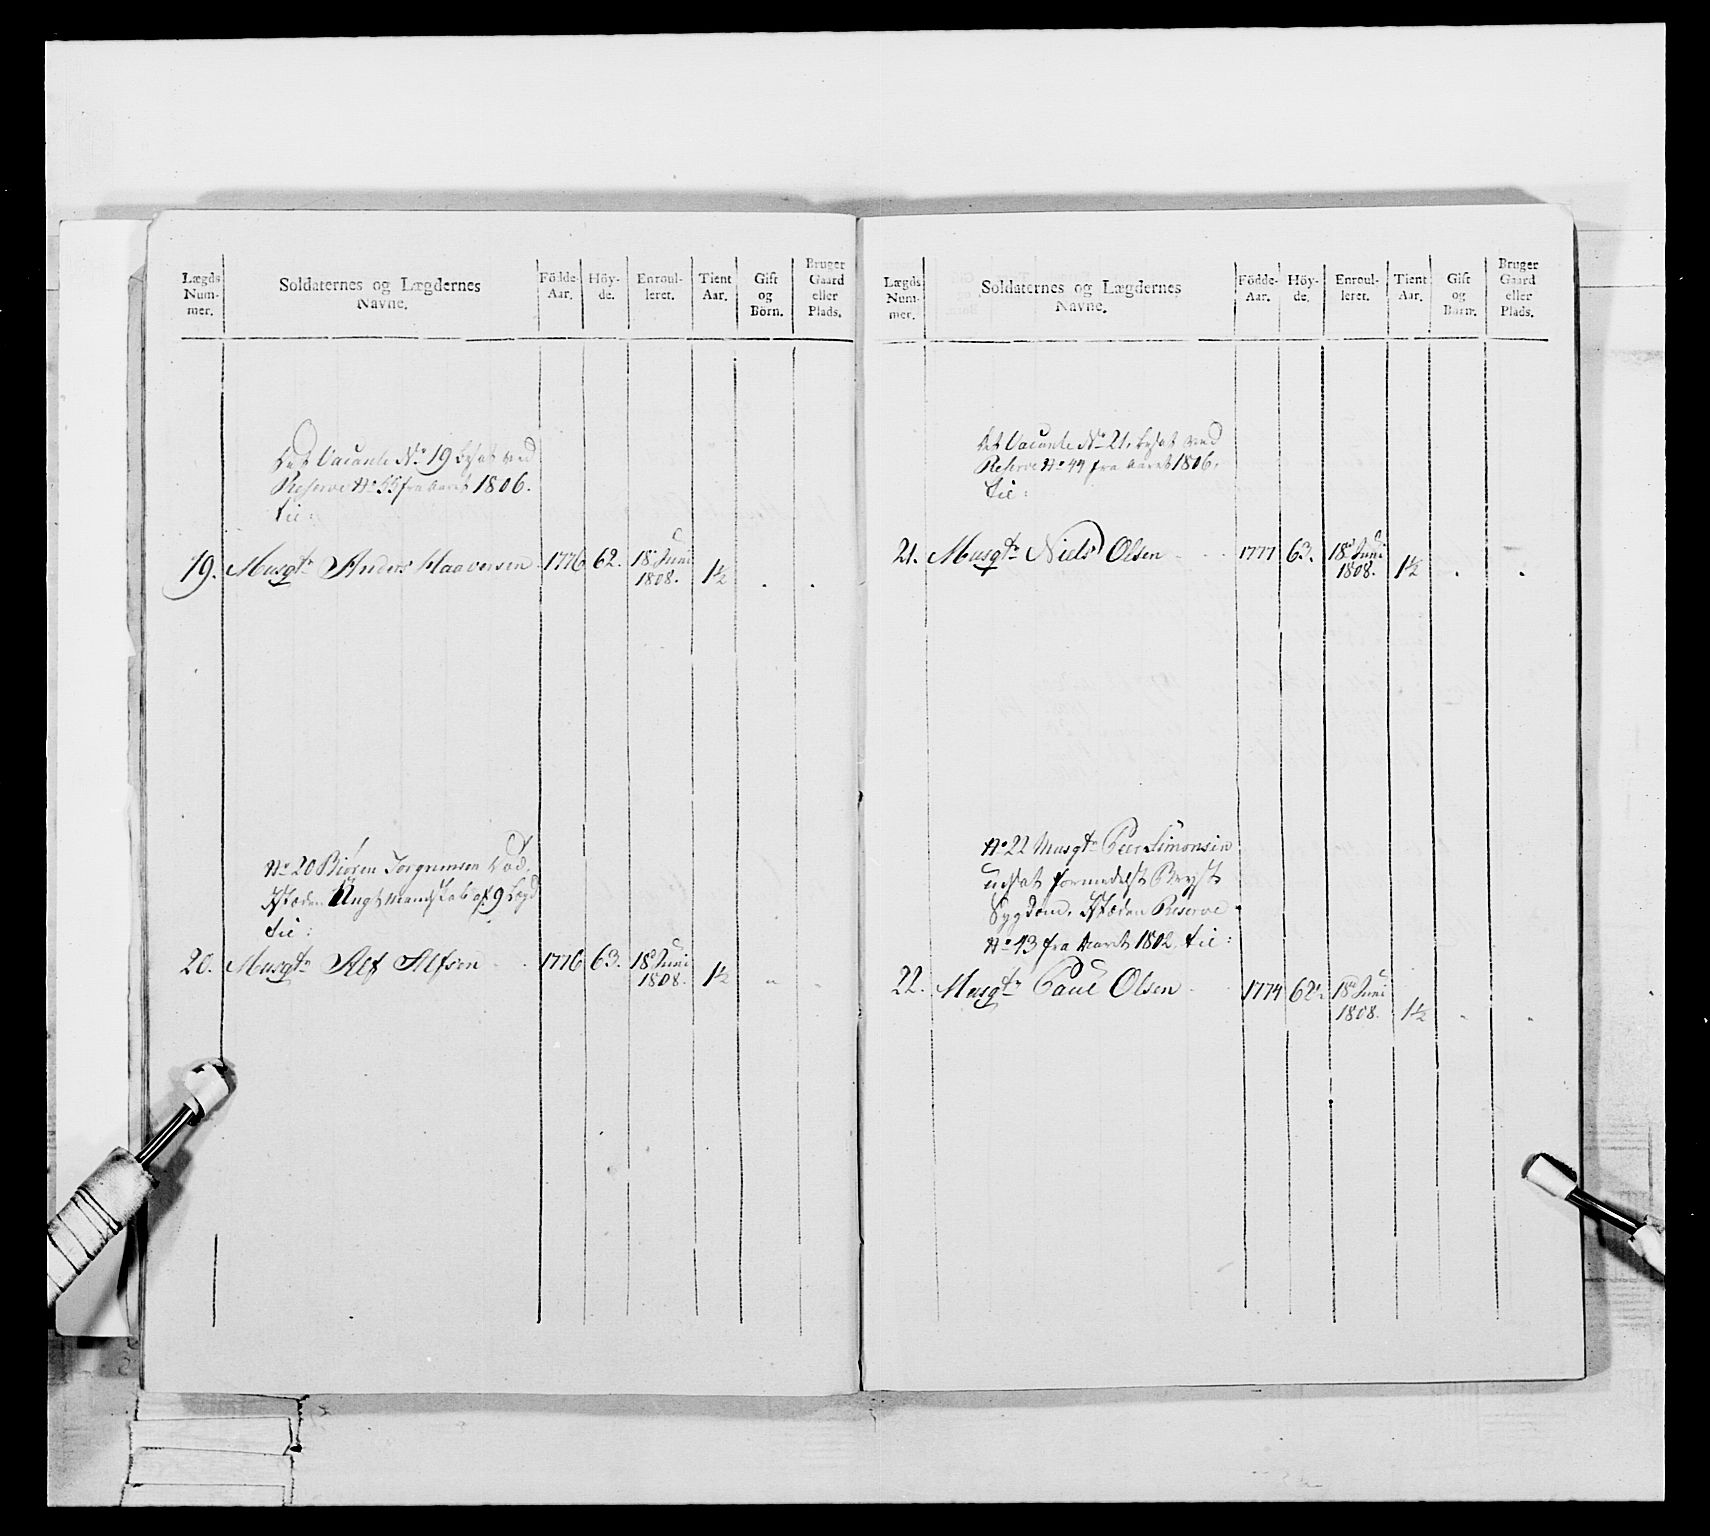 Lægds Num- mer.
Soldaternes og Lægdernes Navne.
Födde- Aar.
Höy- de.
Enroul- leret.
Tient Aar.
Gift og Börn.
Bruger Gaard eller Plads.
Det Vacante No 19 besat ved
Reserve No 55 fra Aaret 1806.
til:
19. Musqtr Anders Haaversen 1776 62. 18de Juni 1808. 1½
No 20 Biören Torgrimsen död,
Isteden Ungt Mandskab af 9 Lægd
til:
20. Musqtr Alf Alfsen 1776 63. 18de Juni 1808. 1½
Lægds Num- mer.
Soldaternes og Lægdernes Navne.
Födde- Aar.
Höy- de.
Enroul- leret.
Tient Aar.
Gift og Börn.
Bruger Gaard eller Plads.
Det Vacante No 21, besat ved
Reserve No 44 fra Aaret 1806.
til:
21. Musqtr Niels Olsen 1777 63. 18de Juni 1808. 1½
No 22 Musqtr Peer Simonsen
udsat formedelst Bryst
Sygdom, Isteden Reserve
No 43 fra Aaret 1802, til:
22. Musqtr Paul Olsen 1774 62½ 18de Juni 1808. 1½